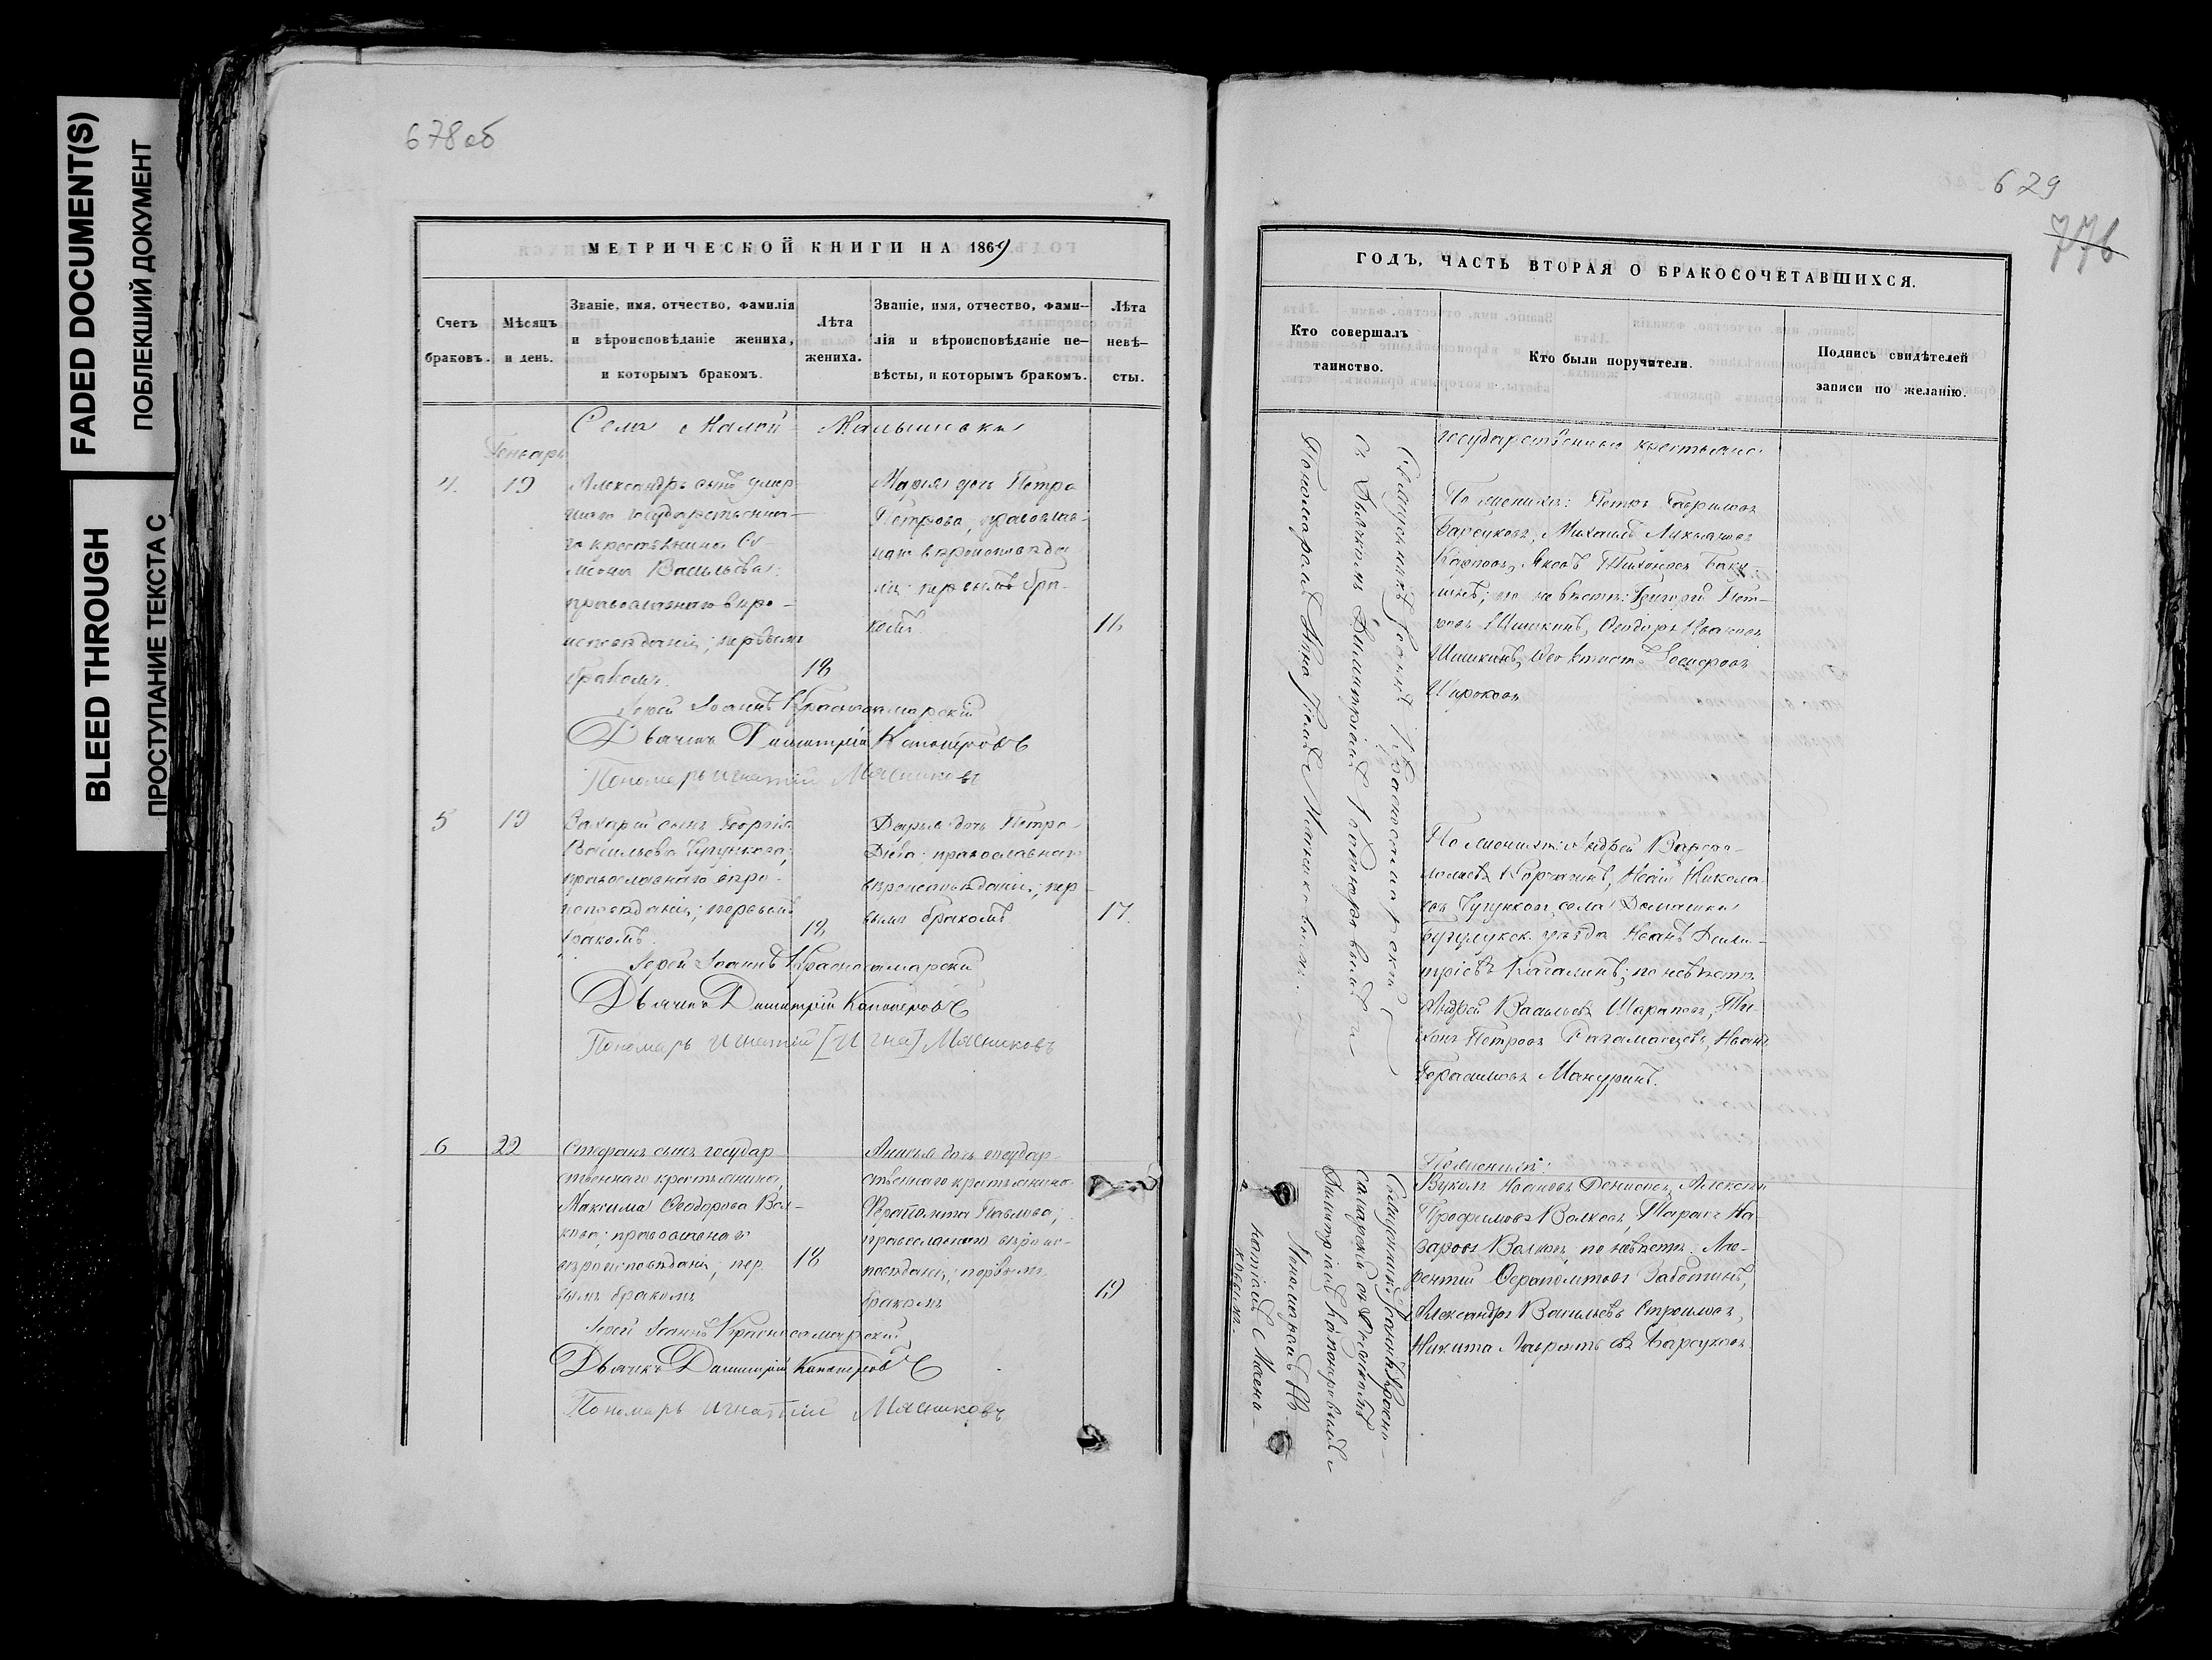 FADED DOCUMENT(S)
ПОБЛЕКШИЙ ДОКУМЕНТ
BLEED THROUGH
ПРОСТУПАНИЕ ТЕКСТА С
678об
МЕТРИЧЕСКОЙ КНИГИ НА 1869
Счетъ браковъ.
Мѣсяцъ и день.
Званіе, имя, отчество, фамилія
и вѣроисповѣданіе жениха,
и которымъ бракомъ.
Лѣта жениха.
Званіе, имя, отчество, фами-
лія и вѣроисповѣданіе не-
вѣсты, и которымъ бракомъ.
Лѣта невѣ-
сты.
Села Малой Малышевки
Генварь
4. 19
Александръ сынъ умер
шаго государственна-
го крестьянина Си-
меона Васильева;
православнаго вѣро-
исповѣданія; первымъ
бракомъ.
18
Марія дочь Петра
Петрова, православ-
наго вѣроисповѣда
нія; первымъ бра-
комъ.
16
Іерей Іоаннъ Красносамарскій
Дьячекъ Димитрій Канонеровъ
Пономарь Игнатій Мясниковъ
5 19
Захарій сынъ Георгія
Васильева Чугункова;
православнаго вѣро-
исповѣданія; первымъ
бракомъ.
18
Дарья дочь Петра
православнаго
вѣроисповѣданія; пер-
вымъ бракомъ
17.
Іерей Іоаннъ Красносамарскій
Дьячекъ Димитрій Канонеровъ
Пономарь Игнатій [Игна] Мясниковъ
6 22
Стефанъ сынъ государ
ственнаго крестьянина
Максима Ѳеодорова Вол-
кова; православнаго
вѣроисповѣданія; пер
вымъ бракомъ
18
Анисья дочь государ-
ственнаго крестьянина
Ѳерапонта Павлова;
православнаго вѣроис-
повѣданія; первымъ
бракомъ
19
Іерей Іоаннъ Красносамарскій
Дьячекъ Димитрій Канонеровъ
Пономарь Игнатій Мясниковъ
629
776
ГОДЪ, ЧАСТЬ ВТОРАЯ О БРАКОСОЧЕТАВШИХСЯ.
Кто совершалъ
таинство.
Кто были поручители.
Подпись свидѣтелей
записи по желанію.
Священникъ Іоаннъ Красносамарскій
съ Дьячкомъ Димитріемъ Канонеровымъ и
Пономаремъ Игнатіемъ Мясниковымъ.
государственные крестьяне:
По женихѣ: Петръ Гавриловъ
Барсуковъ, Михаилъ Лукьяновъ
Карповъ, Яковъ Тихоновъ Баку-
линъ; по невѣстѣ: Григорій Пет-
ровъ Шишкинъ, Ѳеодоръ Ивановъ
Шишкинъ, Ѳеоктистъ Іосифовъ
Широковъ
По женихѣ: Андрей Варѳо-
ломеевъ Корчагинъ, Исай Никола-
евъ Чугунковъ, села Домашки
Бузулукск. уѣзда Иванъ Дими-
тріевъ Качалинъ; по невѣстѣ
Андрей Васильевъ Шараповъ, Ти-
хонъ Петровъ Иванъ
Герасимовъ Манцуринъ.
Священникъ Іоаннъ Красно-
самарскій съ Дьячкомъ
Димитріемъ Канонеровымъ и
Пономаремъ Иг-
натіемъ Мясни-
ковымъ.
По женихѣ:
Вуколъ Ивановъ Денисовъ, Алексѣй
Трофимовъ Волковъ, Тарасъ На-
заровъ Волковъ, по невѣстѣ: Лав-
рентій Ѳерапонтовъ Заботинъ,
Александръ Васильевъ Строиловъ,
Никита Лаврентьевъ Барсуковъ